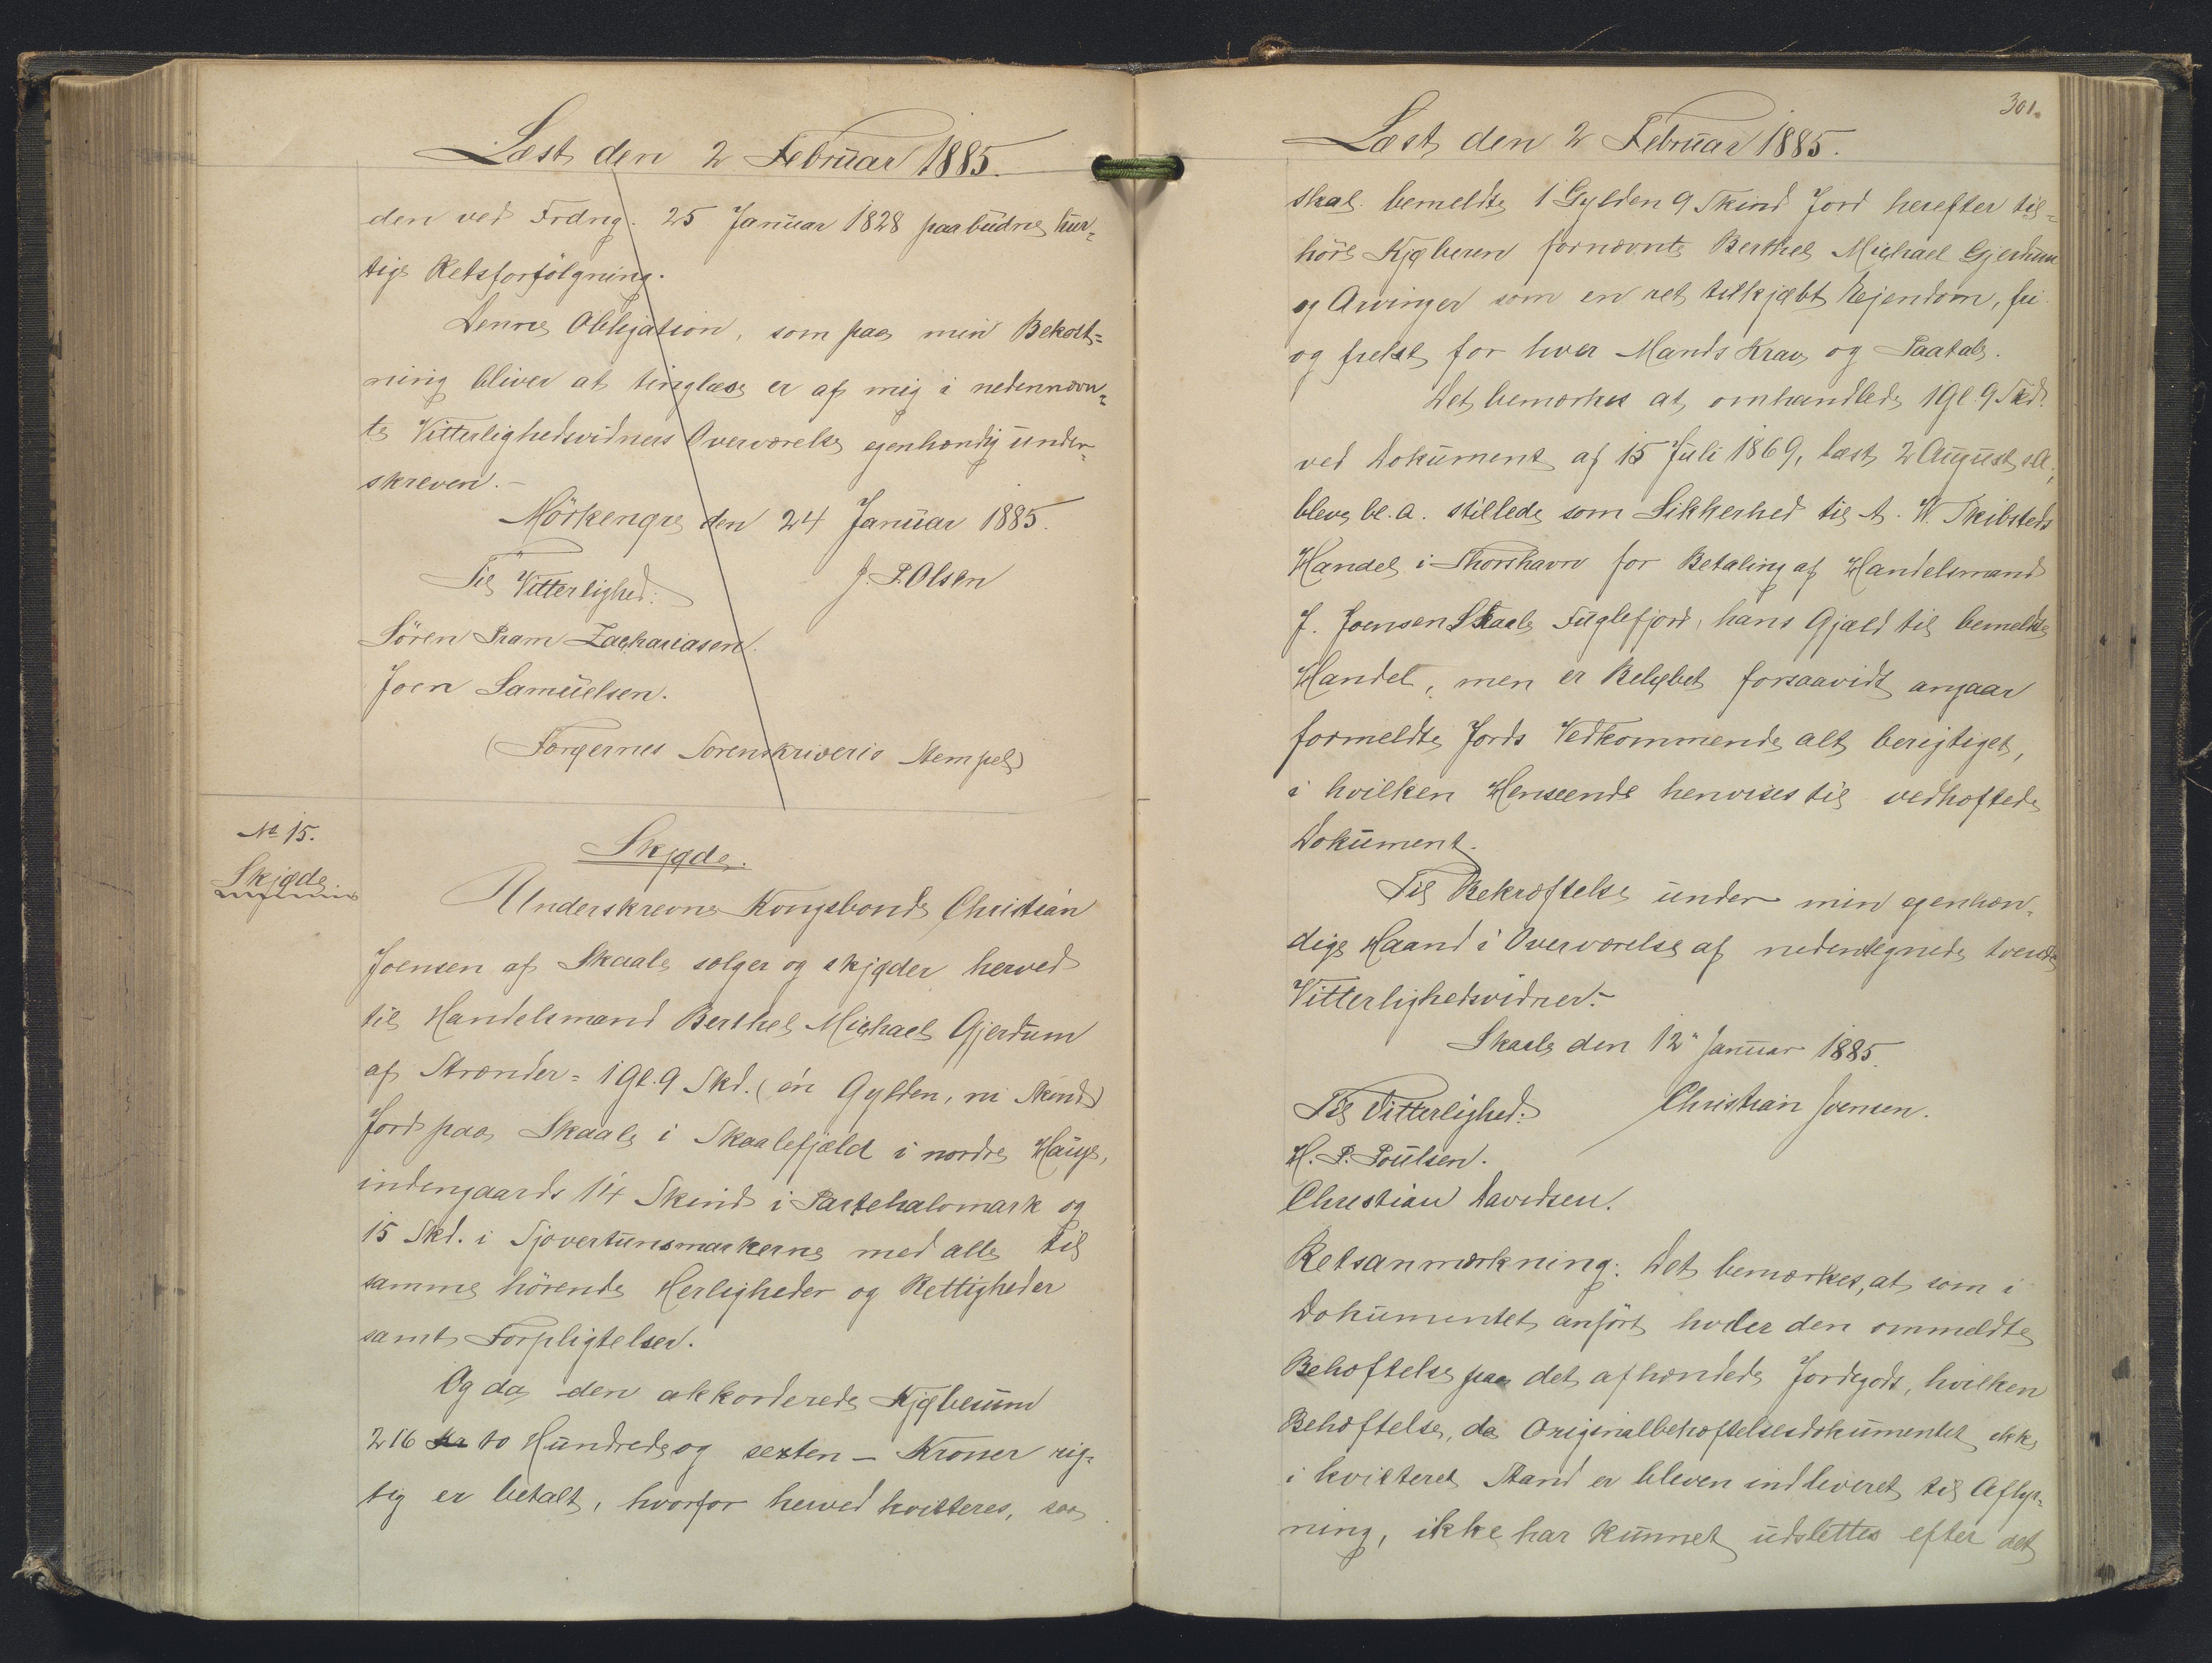 Læst den 2 Februar 1885.
den ved Frdng. 25 Januar 1828 paabudne hur-
tige Retsforfölgning.
Denne Obligation, som paa min Bekost-
ning bliver at tinglæse er af mig i nedennævn-
te Vitterlighedsvidners Overværelse egenhændig under-
skreven.-
Mörkengre den 24 Januar 1885.
Til Vitterlighed: J. P. Olsen
Sören Pram Zachariasen.
Joen Samuelsen.
(Færøernes Sorenskriveris Stempel)
No 15.
Skjøde
Skjøde.
Underskrevne Kongsbonde Christian
Joensen af Skaale sælger og skjøder herved
til Handelsmand Berthel Michael Gjerdum
af Strænder = 1 Gl. 9 Skd. (én Gylden, ni Skind)
Jord paa Skaale i Skaalefjæld i nordre Hauge,
indengaards 14 Skind i Partehalvmark og
15 Skd. i Sjovertunsmarkerne med alle til
samme hörende Herligheder og Rettigheder
samt Forpligtelser.
Og da den akkorderede Kjøbesum
216 Kr to Hundrede og sexten - Kroner rig-
tig er betalt, hvorfor herved kvitteres, saa
301.
Læst den 2 Februar 1885.
skal bemeldte 1 Gylden 9 Skind Jord herefter til-
höre Kjøberen fornævnte Berthel Michael Gjerdum
og Arvinger som en ret tilkjøbt Ejendom, fri
og frelst for hver Mands Krav og Paatale.
Det bemærkes at omhandlede 1 Gl. 9 Skd.
ved Dokument af 15 Juli 1869, læst 2 August s.A.,
bleve bl.a. stillede som Sikkerhed til A. W. Skibsteds
Handel i Thorshavn for Betaling af Handelsmand
J. Joensen Skaale Fuglefjord, hans Gjæld til bemeldte
Handel, men er Beløbet forsaavidt angaar
formeldte Jords Vedkommende alt berigtiget,
i hvilken Henseende henvises til vedhæftede
Dokument.
Til Bekræftelse under min egenhæn-
dige Haand i Overværelse af nedentegnede tvende
Vitterlighedsvidner.-
Skaale den 12" Januar 1885.
Til Vitterlighed: Christian Joensen.
H. P. Poulsen.
Christian Davidsen.
Retsanmærkning: Det bemærkes, at som i
Dokumentet anfört hviler den ommeldte
Behæftelse paa det afhændede Jordegods, hvilken
Behæftelse, da Originalbehæftelsesdokumentet ikke
i kvitteret Stand er bleven indleveret til Aflys-
ning, ikke har kunnet udslettes efter det